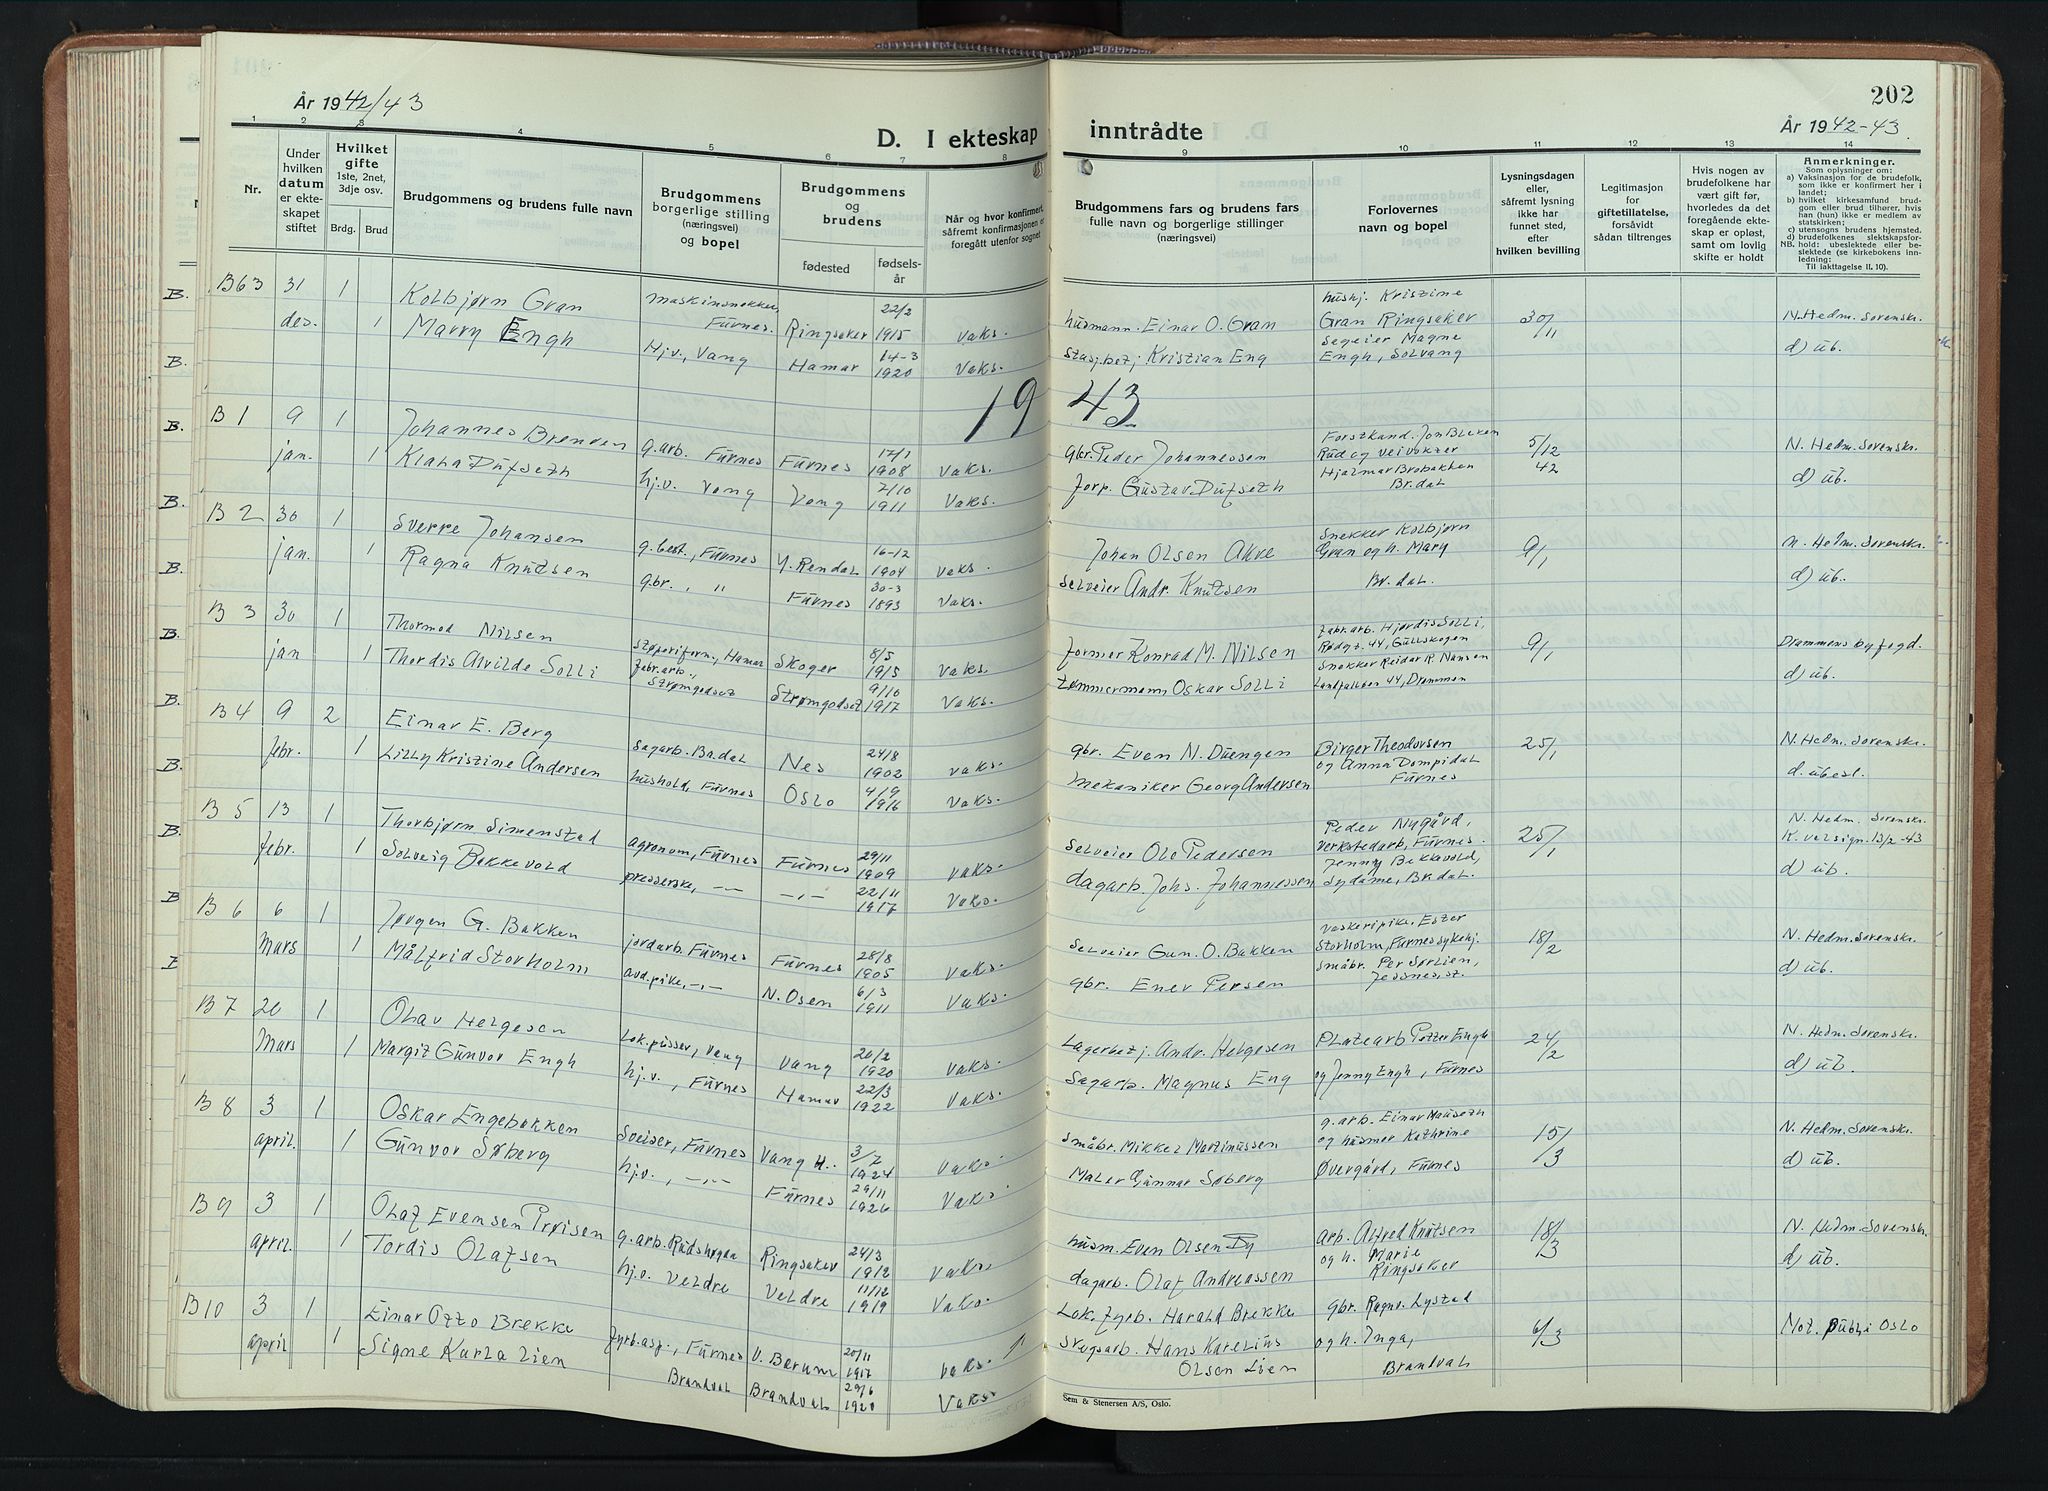 År 1942/43
D. I ekteskap inntrådte
202
År 1942-43.
1 2 3 4 5 6 7 8 9 10 11 12 13 14
Nr.
Under hvilken datum er ekteskapet stiftet
Hvilket gifte 1ste, 2net, 3dje osv.
Brdg. Brud
Brudgommens og brudens fulle navn
Brudgommens borgerlige stilling (næringsvei) og bopel
Brudgommens og brudens
fødested
fødselsår
Når og hvor konfirmert, såfremt konfirmasjonen er foregått utenfor sognet
Brudgommens fars og brudens fars fulle navn og borgerlige stillinger (næringsvei)
Forlovernes navn og bopel
Lysningsdagen eller, såfremt lysning ikke har funnet sted, efter hvilken bevilling
Legitimasjon for giftetillatelse, forsåvidt sådan tiltrenges
Hvis nogen av brudefolkene har vært gift før, hvorledes da det foregående ekteskap er opløst, samt om lovlig skifte er holdt
Anmerkninger.
Som oplysninger om:
a) Vaksinasjon for de brudefolk, som ikke er konfirmert her i landet;
b) hvilket kirkesamfund brudgom eller brud tilhører, hvis han (hun) ikke er medlem av statskirken;
c) utensogns brudens hjemsted.
d) brudefolkenes slektskapsforhold: ubeslektede eller beslektede (se kirkebokens innledning:
NB. Til iakttagelse II. 10).
B. B63 31 1 Kolbjørn Gran maskinsnekker, Furnes. Ringsaker 22/2 1915 vaks. husmann. Einar O. Gran hushj. Kristine Gran Ringsaker 30/11 N. Hedm. Sorenskr.
B. des. 1 Marry Engh Hj.v., Vang Hamar 14-3 1920 Vaks. Stasj.betj Kristian Eng Segeier Magne Engh, Solvang d) ub.
1943
B. B 1 9 1 Johannes Brenden g.arb. Furnes Furnes 17/1 1908 vaks. gbr. Peder Johannessen Forstkand. Jon Bleken Råd og veivokter 5/12 42 N. Hedm. Sorenskr.
B. jan. 1 Klara Dufseth hj.v. Vang Vang 7/10 1911 Vaks. forp. Gustav Dufseth Hjalmar Brobakken Br.dal d) ub.
B 2 30 1 Sverre Johansen g.best., Furnes Y. Rendal 16-12 1904 vaks. Johan Olsen Akre Snekker Kolbjørn Gran og h. Mary 9/1 N. Hedm. Sorenskr.
B. jan. 1 Ragna Knutsen gbr., " Furnes 30-3 1893 Vaks. selveier Andr. Knutsen Br.dal. d) ub.
B. B 3 30 1 Thormod Nilsen Støperiform., Hamar Skoger 8/5 1915 vaks. former Konrad M. Nilsen fabr.arb. Hjørdis Solli, Rødgt. 44, Gullskogen 9/1 Drammens byfogd.
B. jan 1 Thordis Alvilde Solli fabr.arb., Strømgodset Strømgodset 9/10 1917 Vaks. tømmermann Oskar Solli Snekker Reidar R. Nansen Landfallben 44, Drammen d) ub.
B 4 9 2 Einar E. Berg Sagarb. Br.dal Nes 24/8 1902 vaks. gbr. Even N. Duengen Birger Theodorsen 25/1 N. Hedm. Sorenskr.
B. febr. 1 Lilly Kristine Andersen hushold, Furnes Oslo 4/9 1916 Vaks. mekaniker Georg Andersen og Anna Dompidal Furnes d. ubesl.
B. B 5 13 1 Thorbjørn Simenstad agronom, Furnes Furnes 29/11 1909 vaks. selveier Ole Pedersen Peder Nygård, verkstedarb, Furnes. 25/1 N. Hedm. Sorenskr. K. velsign. 13/2-43
B febr. 1 Solveig Bakkevold presserske, -"- -"- 22/11 1917 Vaks. dagarb. Johs. Johannessen Jenny Bekkevold, Sydame, Br.dal. d) ub.
B 6 6 1 Jørgen G. Bakken jordarb. Furnes Furnes 28/8 1905 Vaks. selveier Gun. O. Bakken vaskeripike. Ester Storholm, Furnes sykehj. 18/2 N. Hedm. Sorenskr.
B mars 1 Målfrid Storholm avd.pike, -"- N. Osen 6/3 1911 Vaks. gbr. Ener Persen småbr. Per Sørlien, Jessnes, st. d) ub.
B 7 20 1 Olav Helgesen Lok.pusser, Vang Vang 20/2 1920 vaks. Lagerbetj. Andr. Helgesen Platearb Petter Engh 24/2 N. Hedm. Sorenskr.
Mars 1 Margit Gunvor Engh hj.v., Furnes Hamar 22/3 1922 Vaks. Sagarb. Magnus Eng og Jenny Engh, Furnes d) ub.
B 8 3 1 Oskar Engebakken Sveiser, Furnes Vang H.. 3/7 1924 vaks. småbr. Mikkel Martinussen g.arb. Einar Mauseth og husmor Kathrine 15/3 N. Hedm. Sorenskr.
april. 1 Gunvor Søberg hj.v., -"- Furnes 29/11 1926 Vaks. Maler Gunnar Søberg Øvergård, Furnes d) ub.
B 9 3 1 Olaf Evensen Prøisen g.arb. Rudshøgda Ringsaker 24/3 1912 vaks. husm. Even Olsen Dy arb. Alfred Knutsen 18/3 N. Hedm. Sorenskr.
april. 1 Tordis Olafsen hj.v. Veldre Veldre 11/12 1919 Vaks. dagarb. Olaf Andreassen og h. Marie Ringsaker d) ub.
B 10 3 1 Einar Otto Brekke fyrb.asp., Furnes V. Bærum 20/11 1917 vaks. Lok.fyrb. Harald Brekke gbr. Ragnv. Lystad 6/3 Not. Publ. i Oslo
april 1 Signe Karla Lien Brandval Brandval 29/6 1920 Vaks. skogsarb. Hans Karelius Olsen Lien og h. Inga, Brandval
Sem & Stenersen A/S, Oslo.